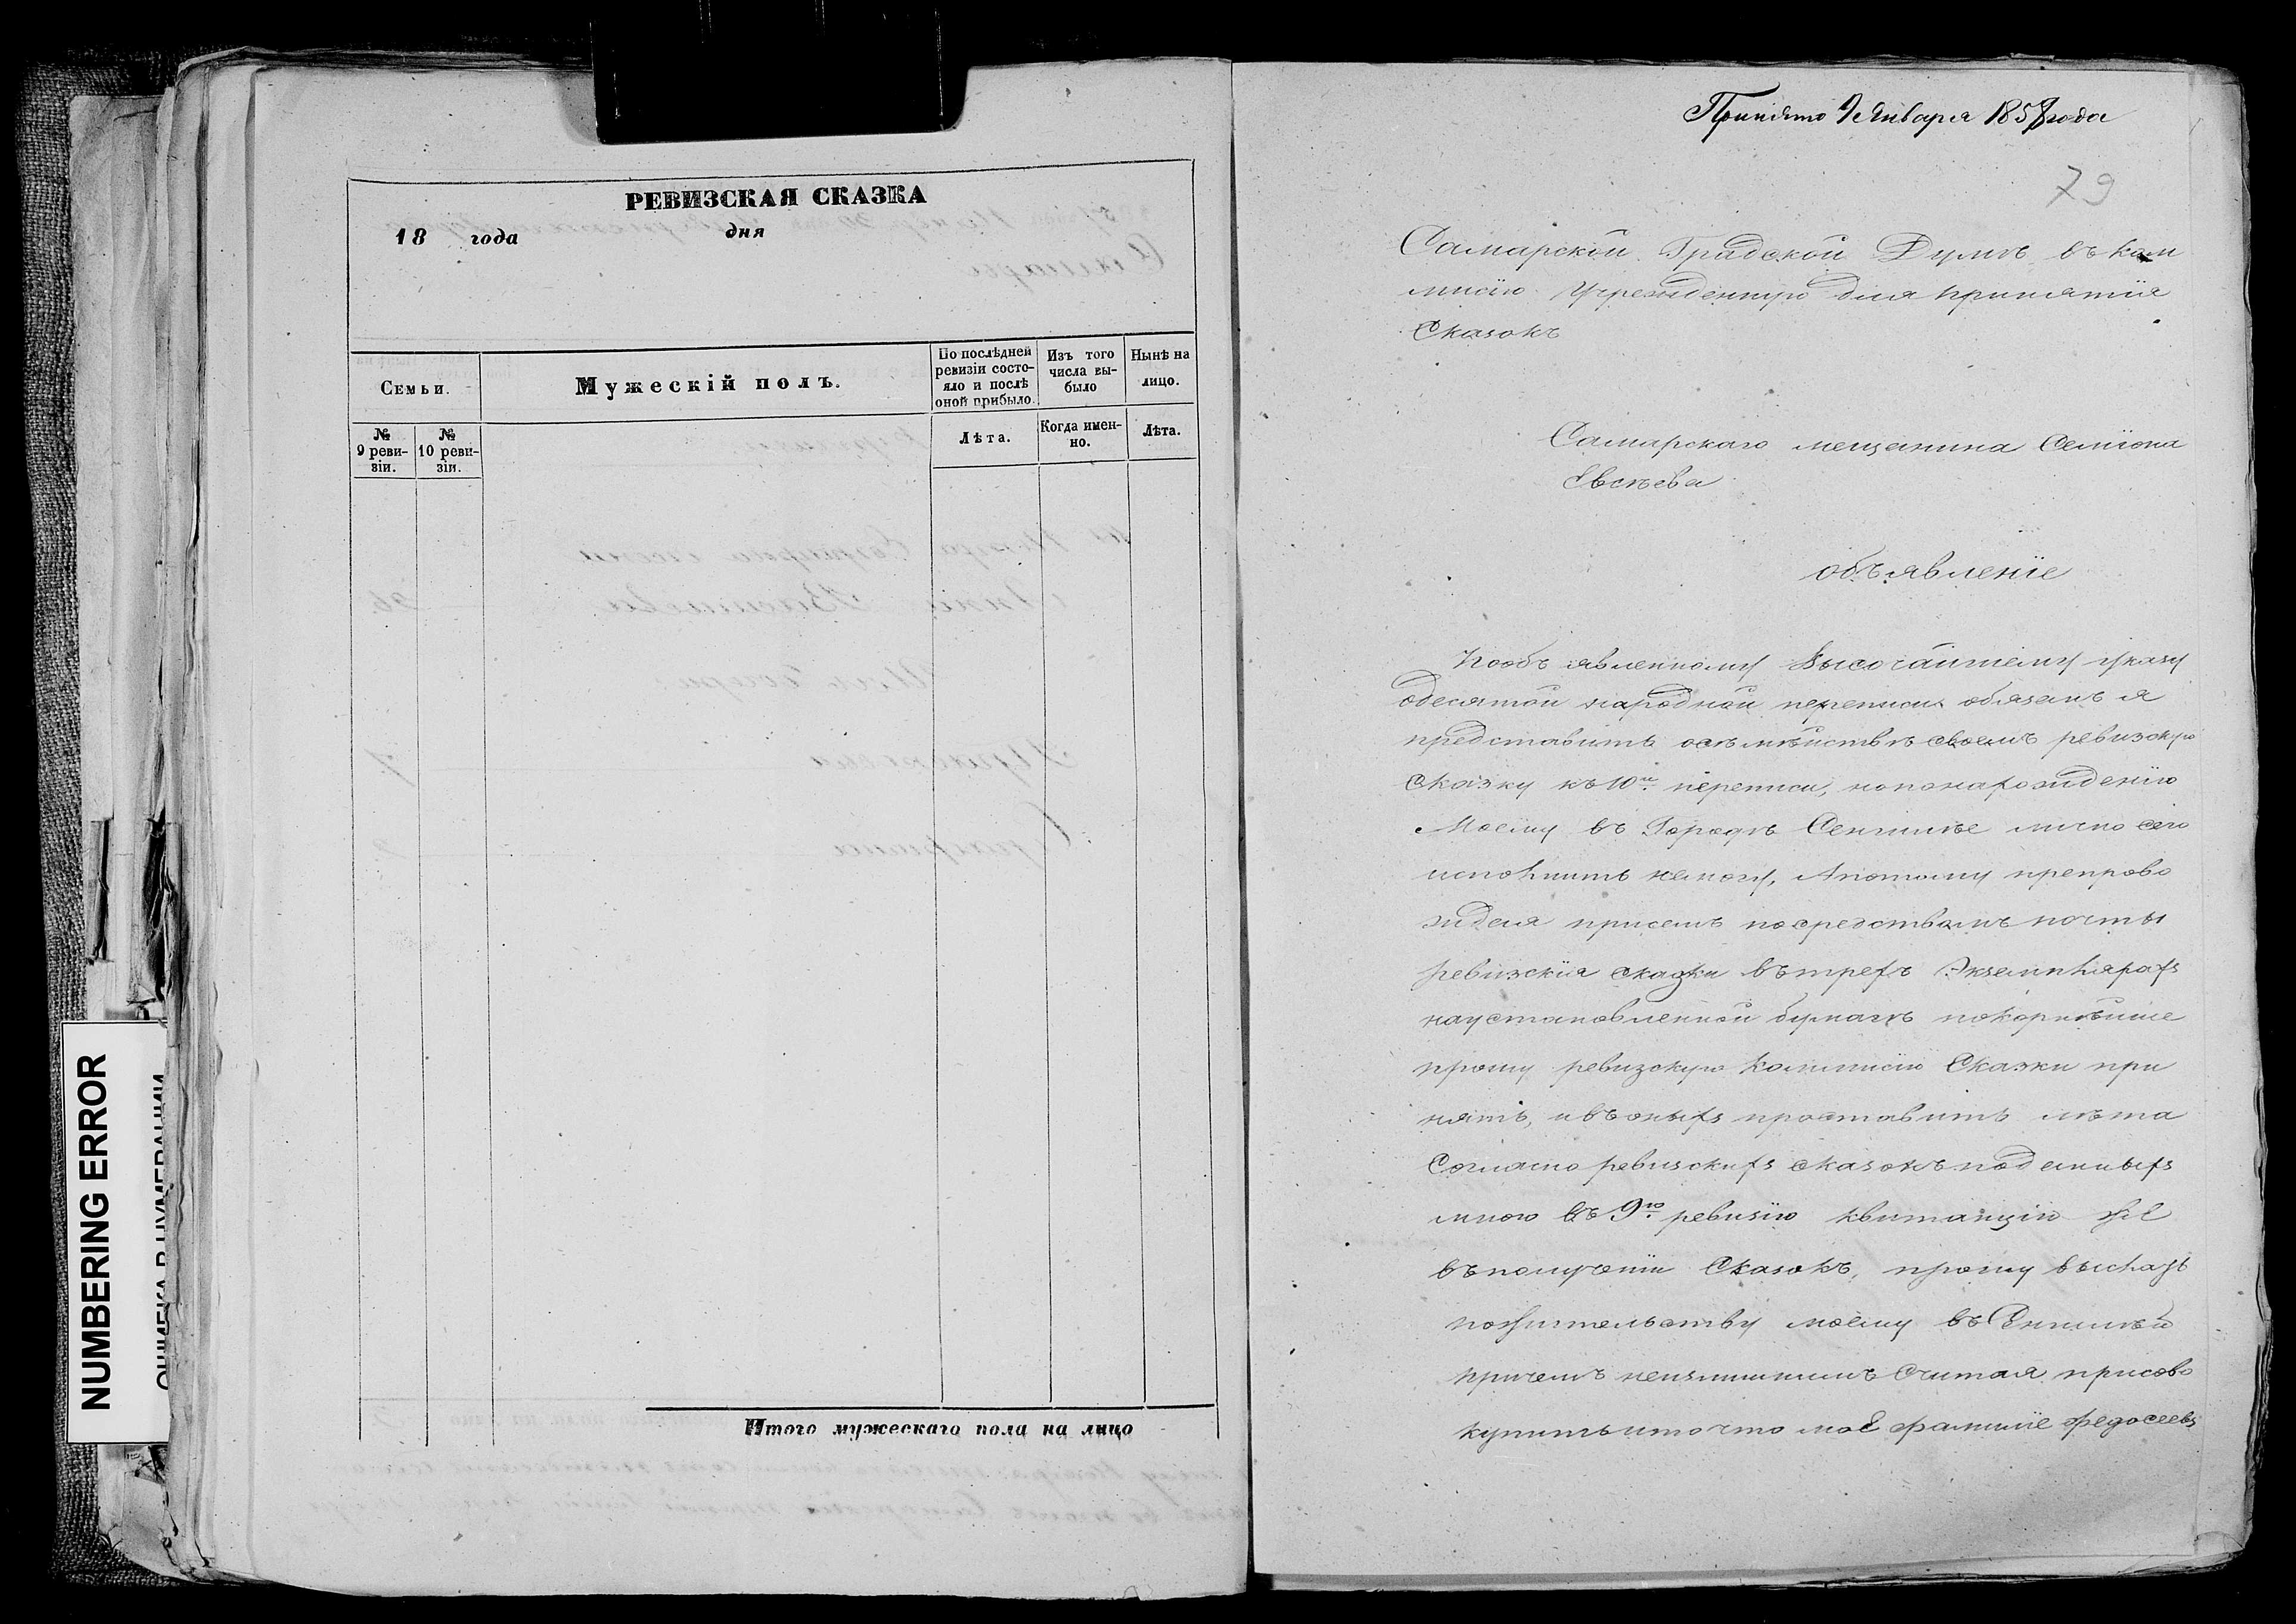 РЕВИЗСКАЯ СКАЗКА
18 года дня
Семьи.
Мужескій полъ.
По послѣдней ревизіи состояло и послѣ оной прибыло.
Изъ того числа выбыло
Нынѣ на лицо.
№ 9 ревизіи.
№ 10 ревизіи.
Лѣта.
Когда именно.
Лѣта.
Итого мужескаго пола на лицо
NUMBERING ERROR
Принято Января 1858 года
79
Самарской Градской Думѣ въ Ком
мисію Учрежденную для принятія
Сказокъ
Самарскаго мещанина Семіона
Евсѣева
объявленіе
Пообъявленному Высочайшему указу
одесятой народной переписи обязанъ я
представить осѣмѣйствѣ своемъ ревизскую
Сказку къ 10й переписи, но понарожденію
Моему въ Городѣ Сенгилѣе лично сего
исполнить немогу, Апотому препрово
ждая присемъ посредствамъ почты
ревизскія сказки втрехъ Экземплярахъ
наустановленной бумагѣ покорнѣише
прошу ревизскую Коммисію Сказки при
нять, ивъоныхъ проставить лѣта
Согласно ревизскихъ сказокъ поданныхъ
мною въ 9ю ревизію квитанцію же
въполученіи Сказокъ, прошу выслать
пожительству моему въ
причемъ неизлишнимъ Считая присово
купить ито что мое фамиліе Федосеевъ